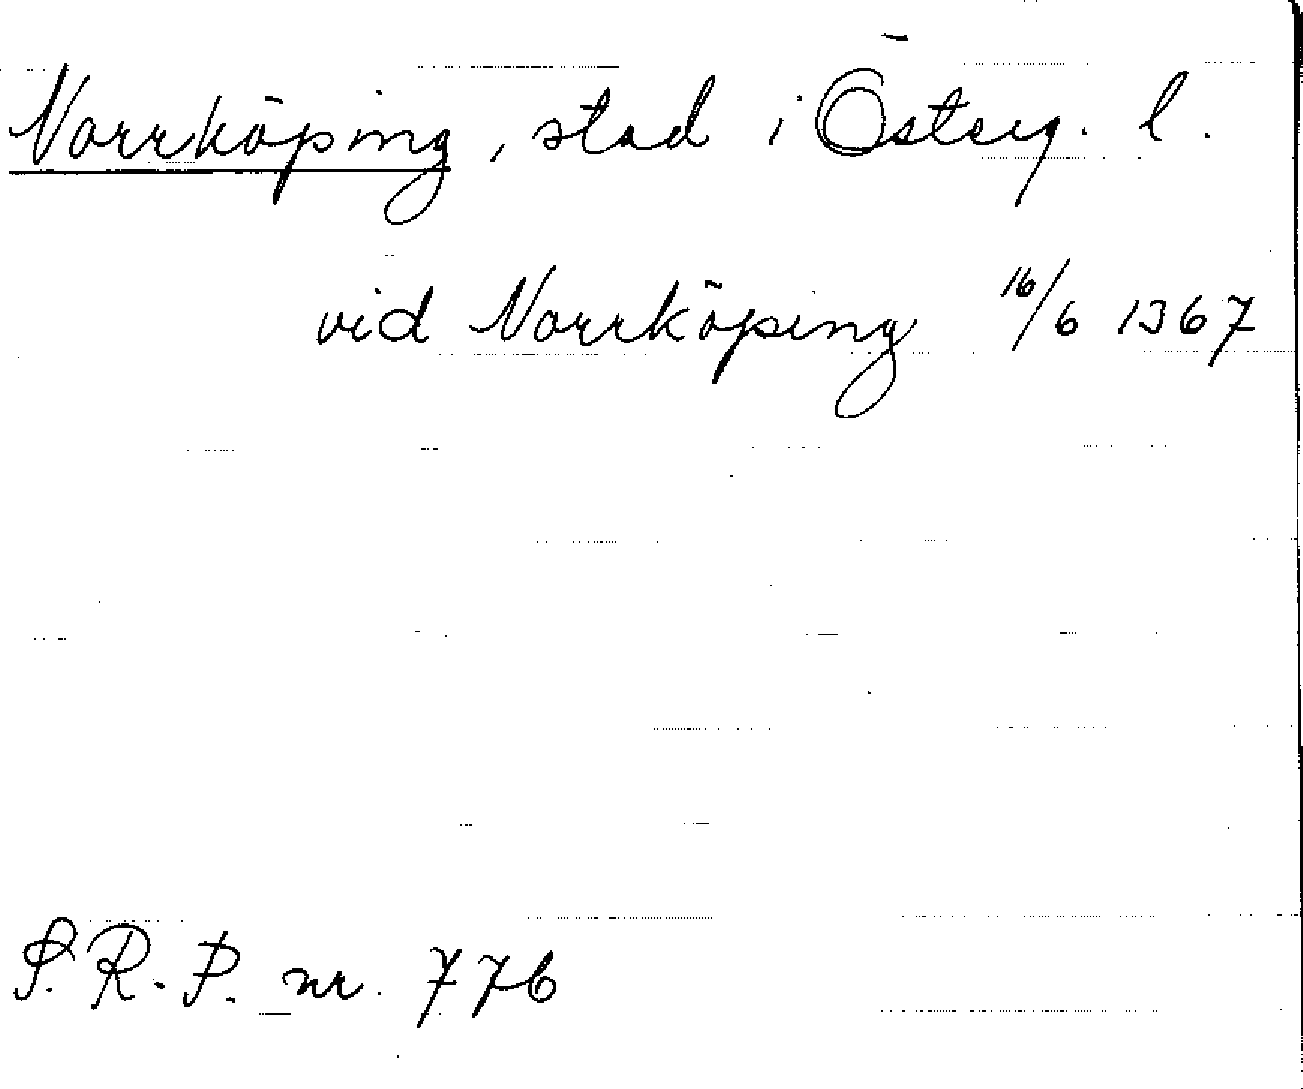 Norrköping, stad i Österg. l.
vid Norrköping 16/6 1367
S. R. P. nr. 776